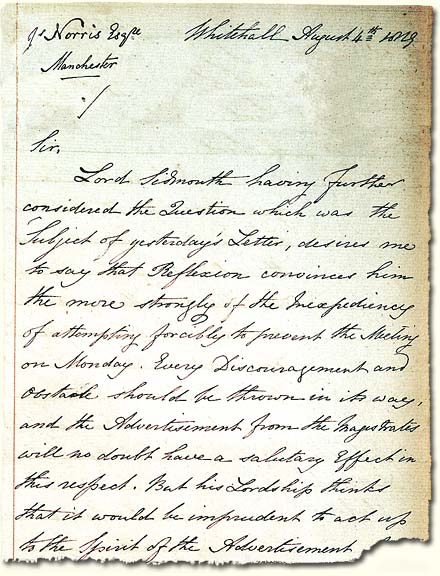 Js Norris Esqre
Whitehall August 4th 1819
Manchester
Sir,
Lord Sidmouth having further
considered the Question which was the
Subject of yesterday's Letter, desires me
to say that Reflexion convinces him
the more strongly of the Inexpediency
of attempting forcibly to prevent the Meeting
on Monday. Every Discouragement and
obstacle should be thrown in its way,
and the Advertisement from the Magistrates
will no doubt have a salutary Effect in
this respect. But his Lordship thinks
that it would be imprudent to act up
to the Spirit of the Advertisement